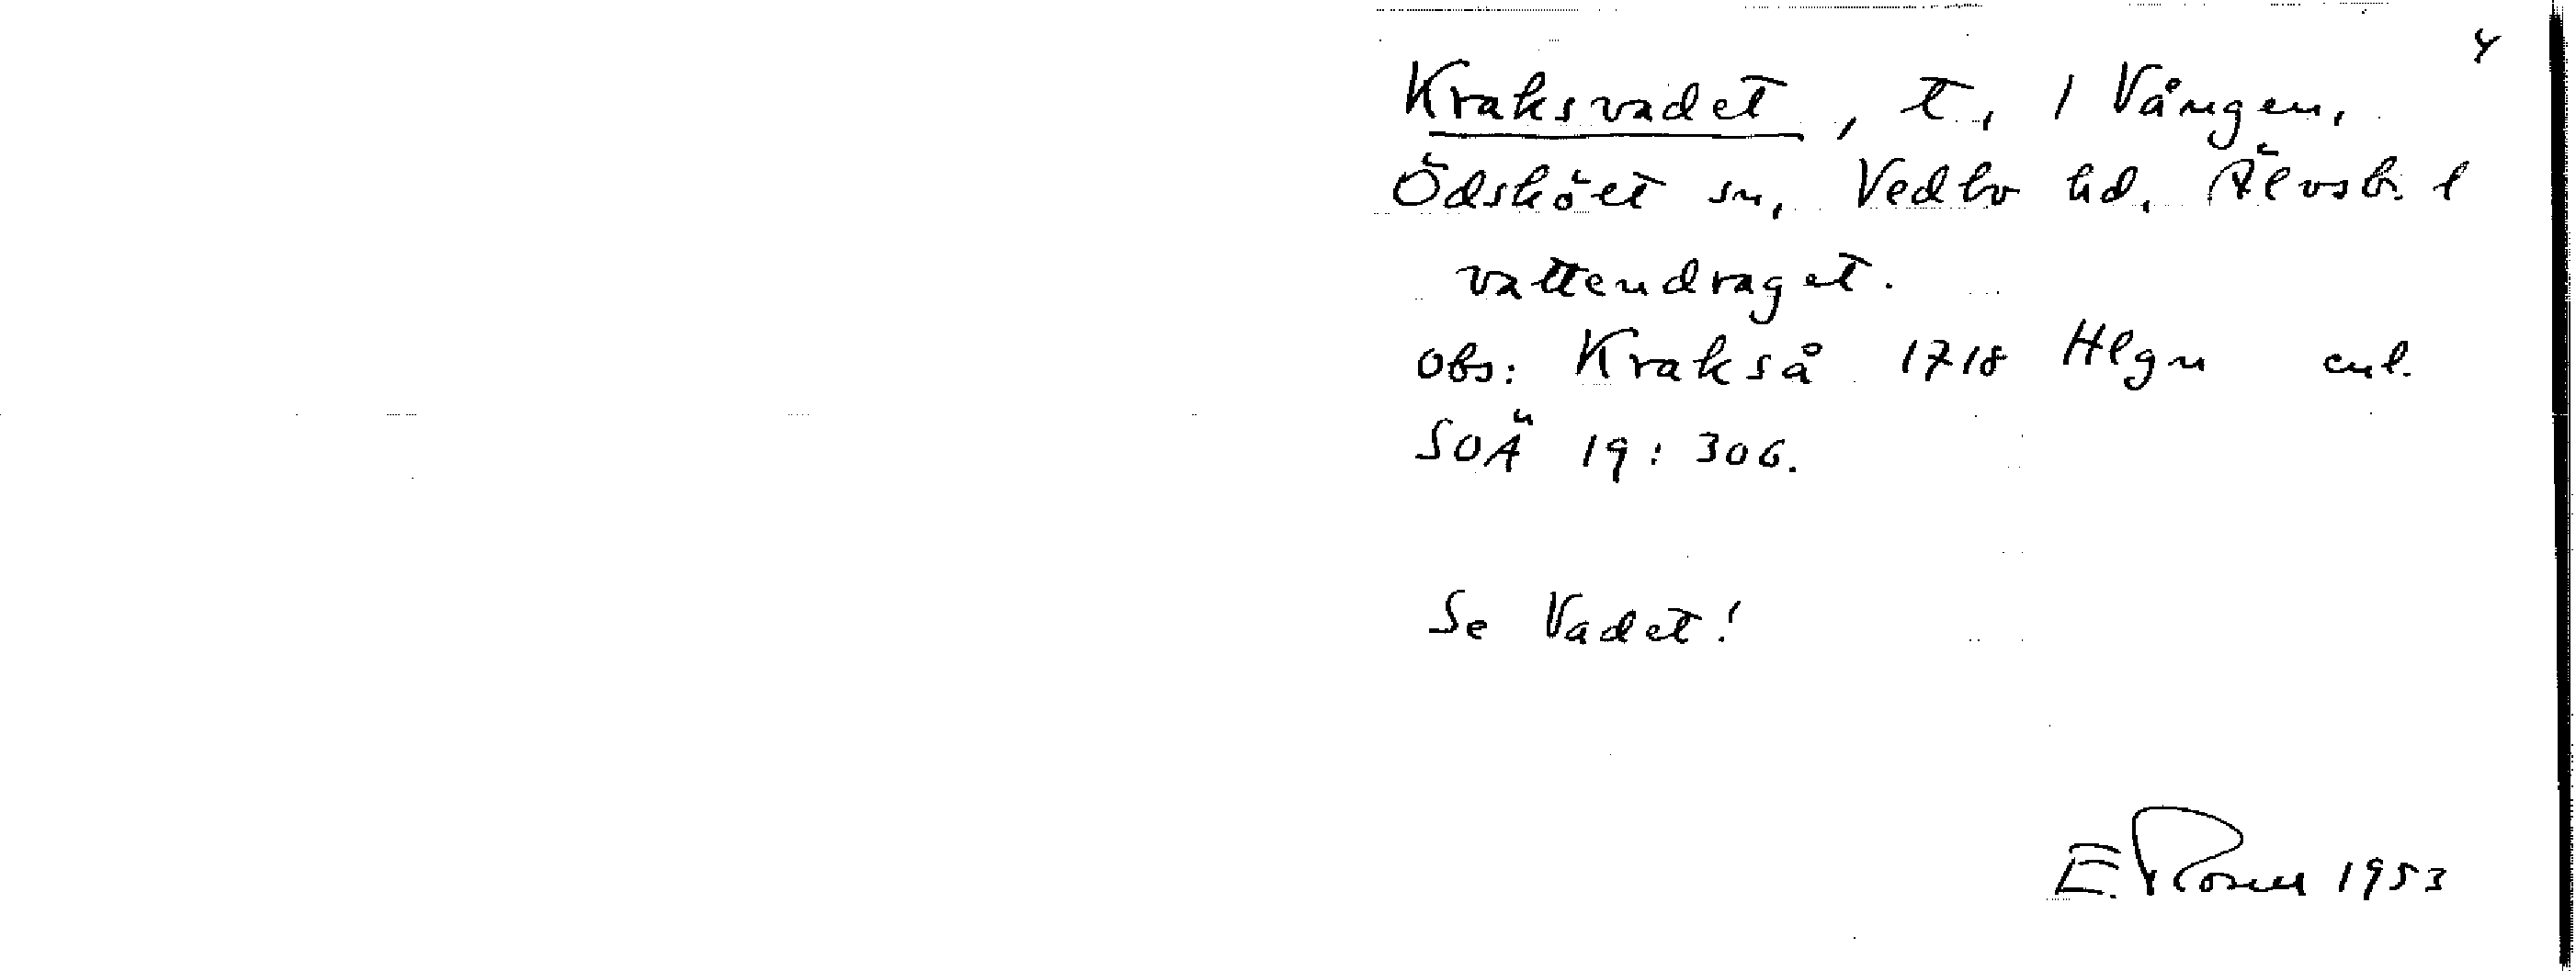 4
Kraksvadet, t., 1 Vången,
Ödskölt sn, Vedbo hd, Älvsb. l
vattendraget.
obs: Krakså 1718 Hlgn enl.
SOÄ 19: 306.
Se Vadet!
E. Rosell 1953